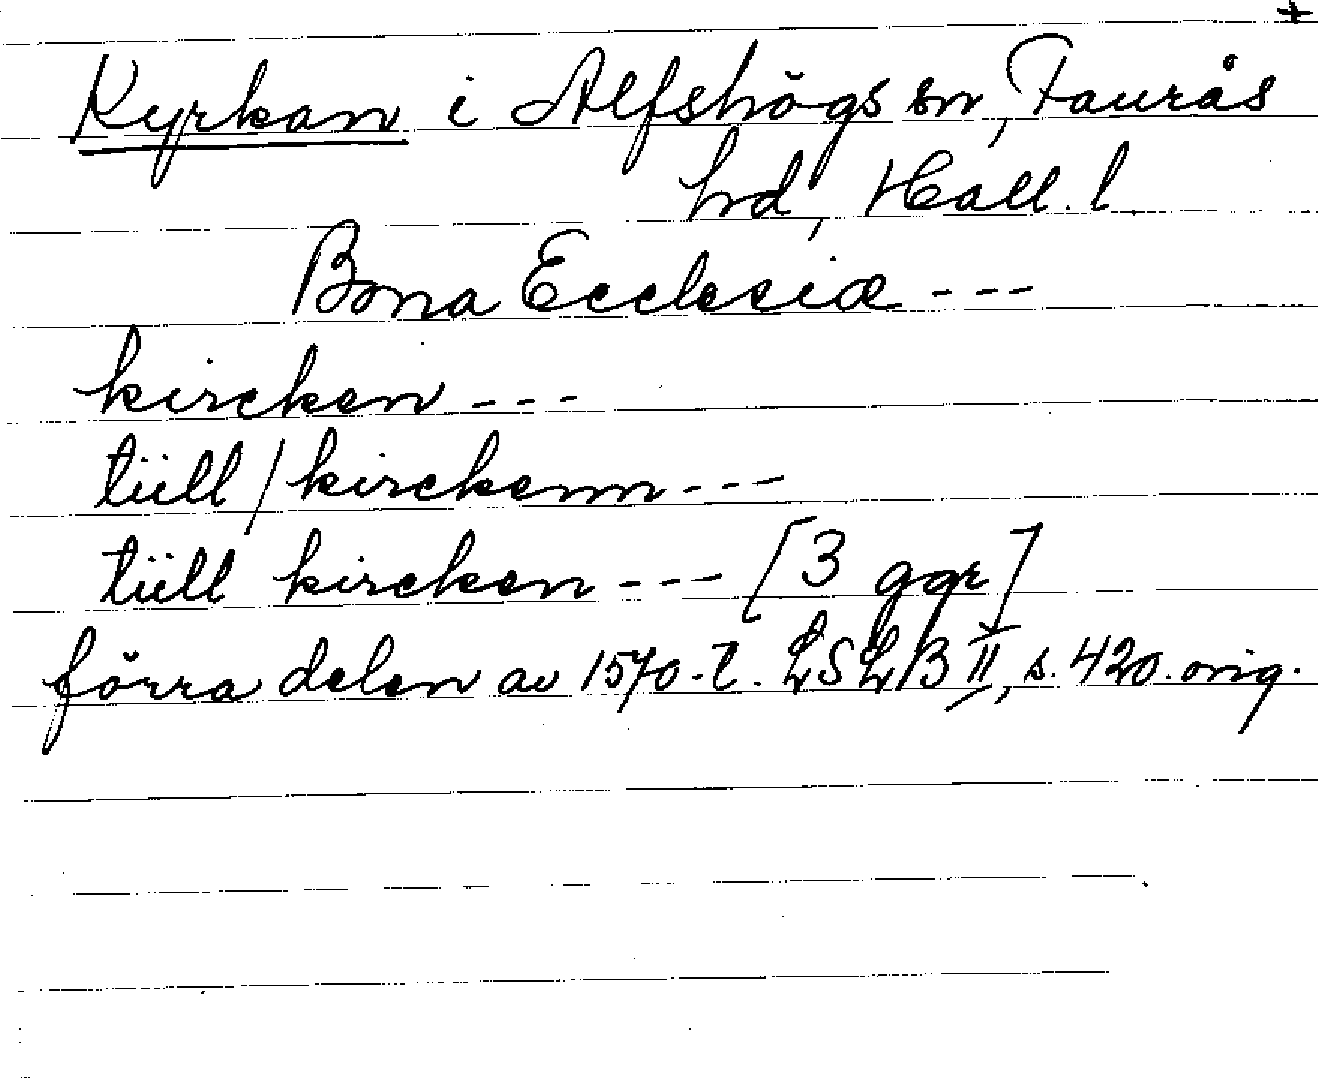 +
Kyrkan i Alfshögs sn, Faurås
hd, Hall. l.
Bona Ecclesiæ ---
kircken ---
tüll / kirckenn ---
tüll kircken --- [3 ggr]
förra delen av 1570-t. LSLB II, s. 420. orig.